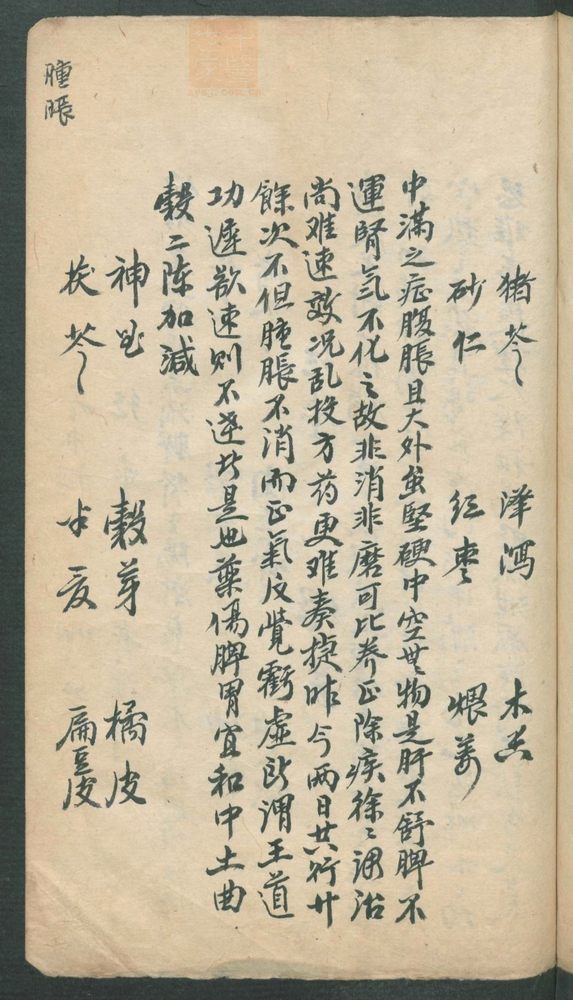 猪苓 澤瀉 木香
砂仁 红枣 煨姜
中滿之症腹脹且大外虽堅硬中空無物是肝不舒脾不
運腎氣不化之故非消非磨可比养正除疾徐〻調治
尚难速效况乱投方药更难奏捷昨今两日共行廿
餘次不但腫脹不消而正氣反覺虧虚所謂王道
功遲欲速则不達者是也藥傷脾胃宜和中土曲
穀二陈加減
神曲 穀芽 橘皮
茯苓 半夏 扁豆皮
腫脹